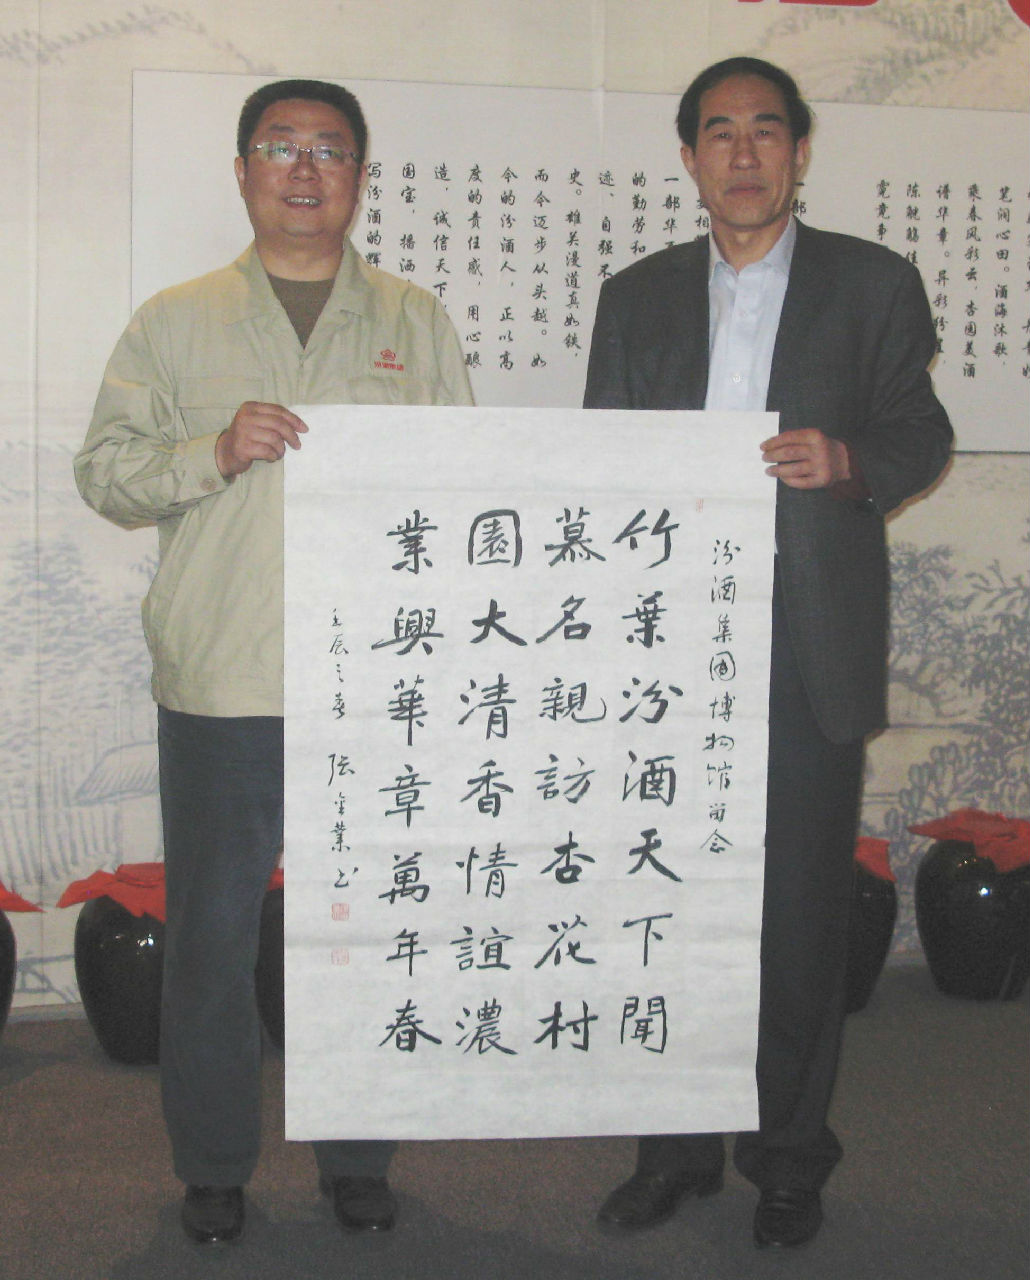 汾酒集團博物馆留念
竹葉汾酒天下聞
慕名親訪杏花村
園大清香情誼濃
業興華章萬年春
壬辰之春 張金業书
一部华
的勤劳和
迹、自强不
史。雄关漫道真如铁，
而今迈步从头越。如
今的汾酒人，正以高
度的责任感，用心酿
造，诚信天下，
国宝，播洒
写汾酒的辉
笔润心田。酒海沐歌
乘春风彩云，杏园美酒
谱华章。异彩纷呈，
陈觥觞佳
竟竟事
汾酒集团